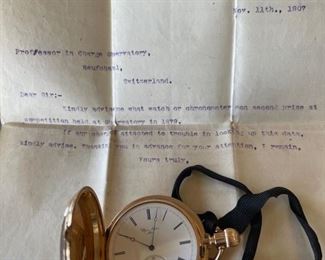 Nov. 11th., 1907
Proffessor in Charge Obervatory,
Neufchanl,
Switzerland.
Dear Sir:-
Kindly advise me what watch or chronometer won second prize at
competition held at Observatory in 1879.
If any charge attached to trouble in looking up this data,
kindly advise. Thanking you in advance for your attention, I remain,
Yours truly,